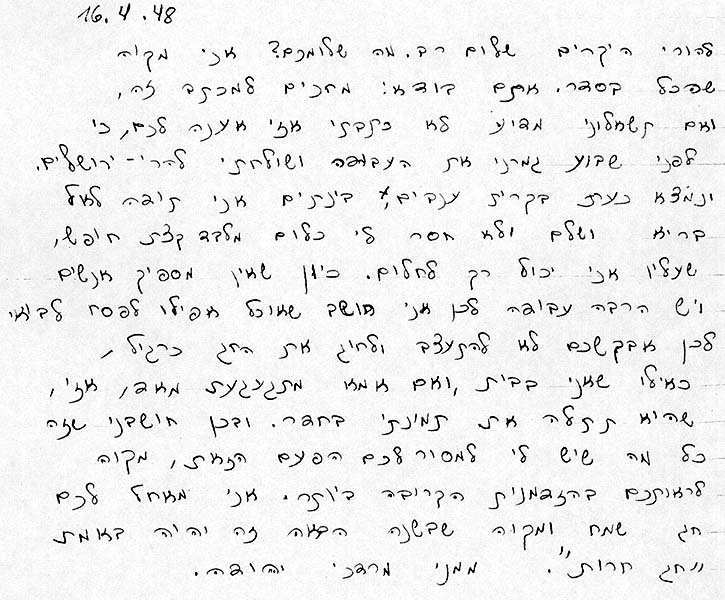 16.4.48
להורי היקרים שלום רב. מה שלומכם? אני מקוה
שהכל בסדר. אתם בודאי מחכים למכתב זה,
ואם תשאלוני מדוע לא כתבתי אזי אענה לכם, כי
לפני שבוע גמרני את העבודה ושולחתי להרי-ירושלים.
ונמצא כעת בקרית ענבים, בינתים אני תודה לאל
בריא ושלם ולא חסר לי כלום מלבד קצת חופש,
שעליו אני יכול רק לחלום. כיון שאין מספיק אנשים
ויש הרבה עבודה לכן אני חושב שאוכל אפילו לפסח לבוא
לכן אבקשכם לא להתעצב ולחוג את החג כרגיל,
כאילו שאני בבית, ואם אמא מתגעגעת מאד, אזי,
שהיא תתלה את תמונתי בחדר. ובכן חושבני שזה
כל מה שיש לי למסור לכם הפעם הזאת, מקוה
לראותכם בהזדמנות הקרובה ביותר. אני מאחל לכם
חג שמח ומקוה שבשנה הבאה זה יהיה באמת
"חג חרות". ממני מרדכי יהודה.